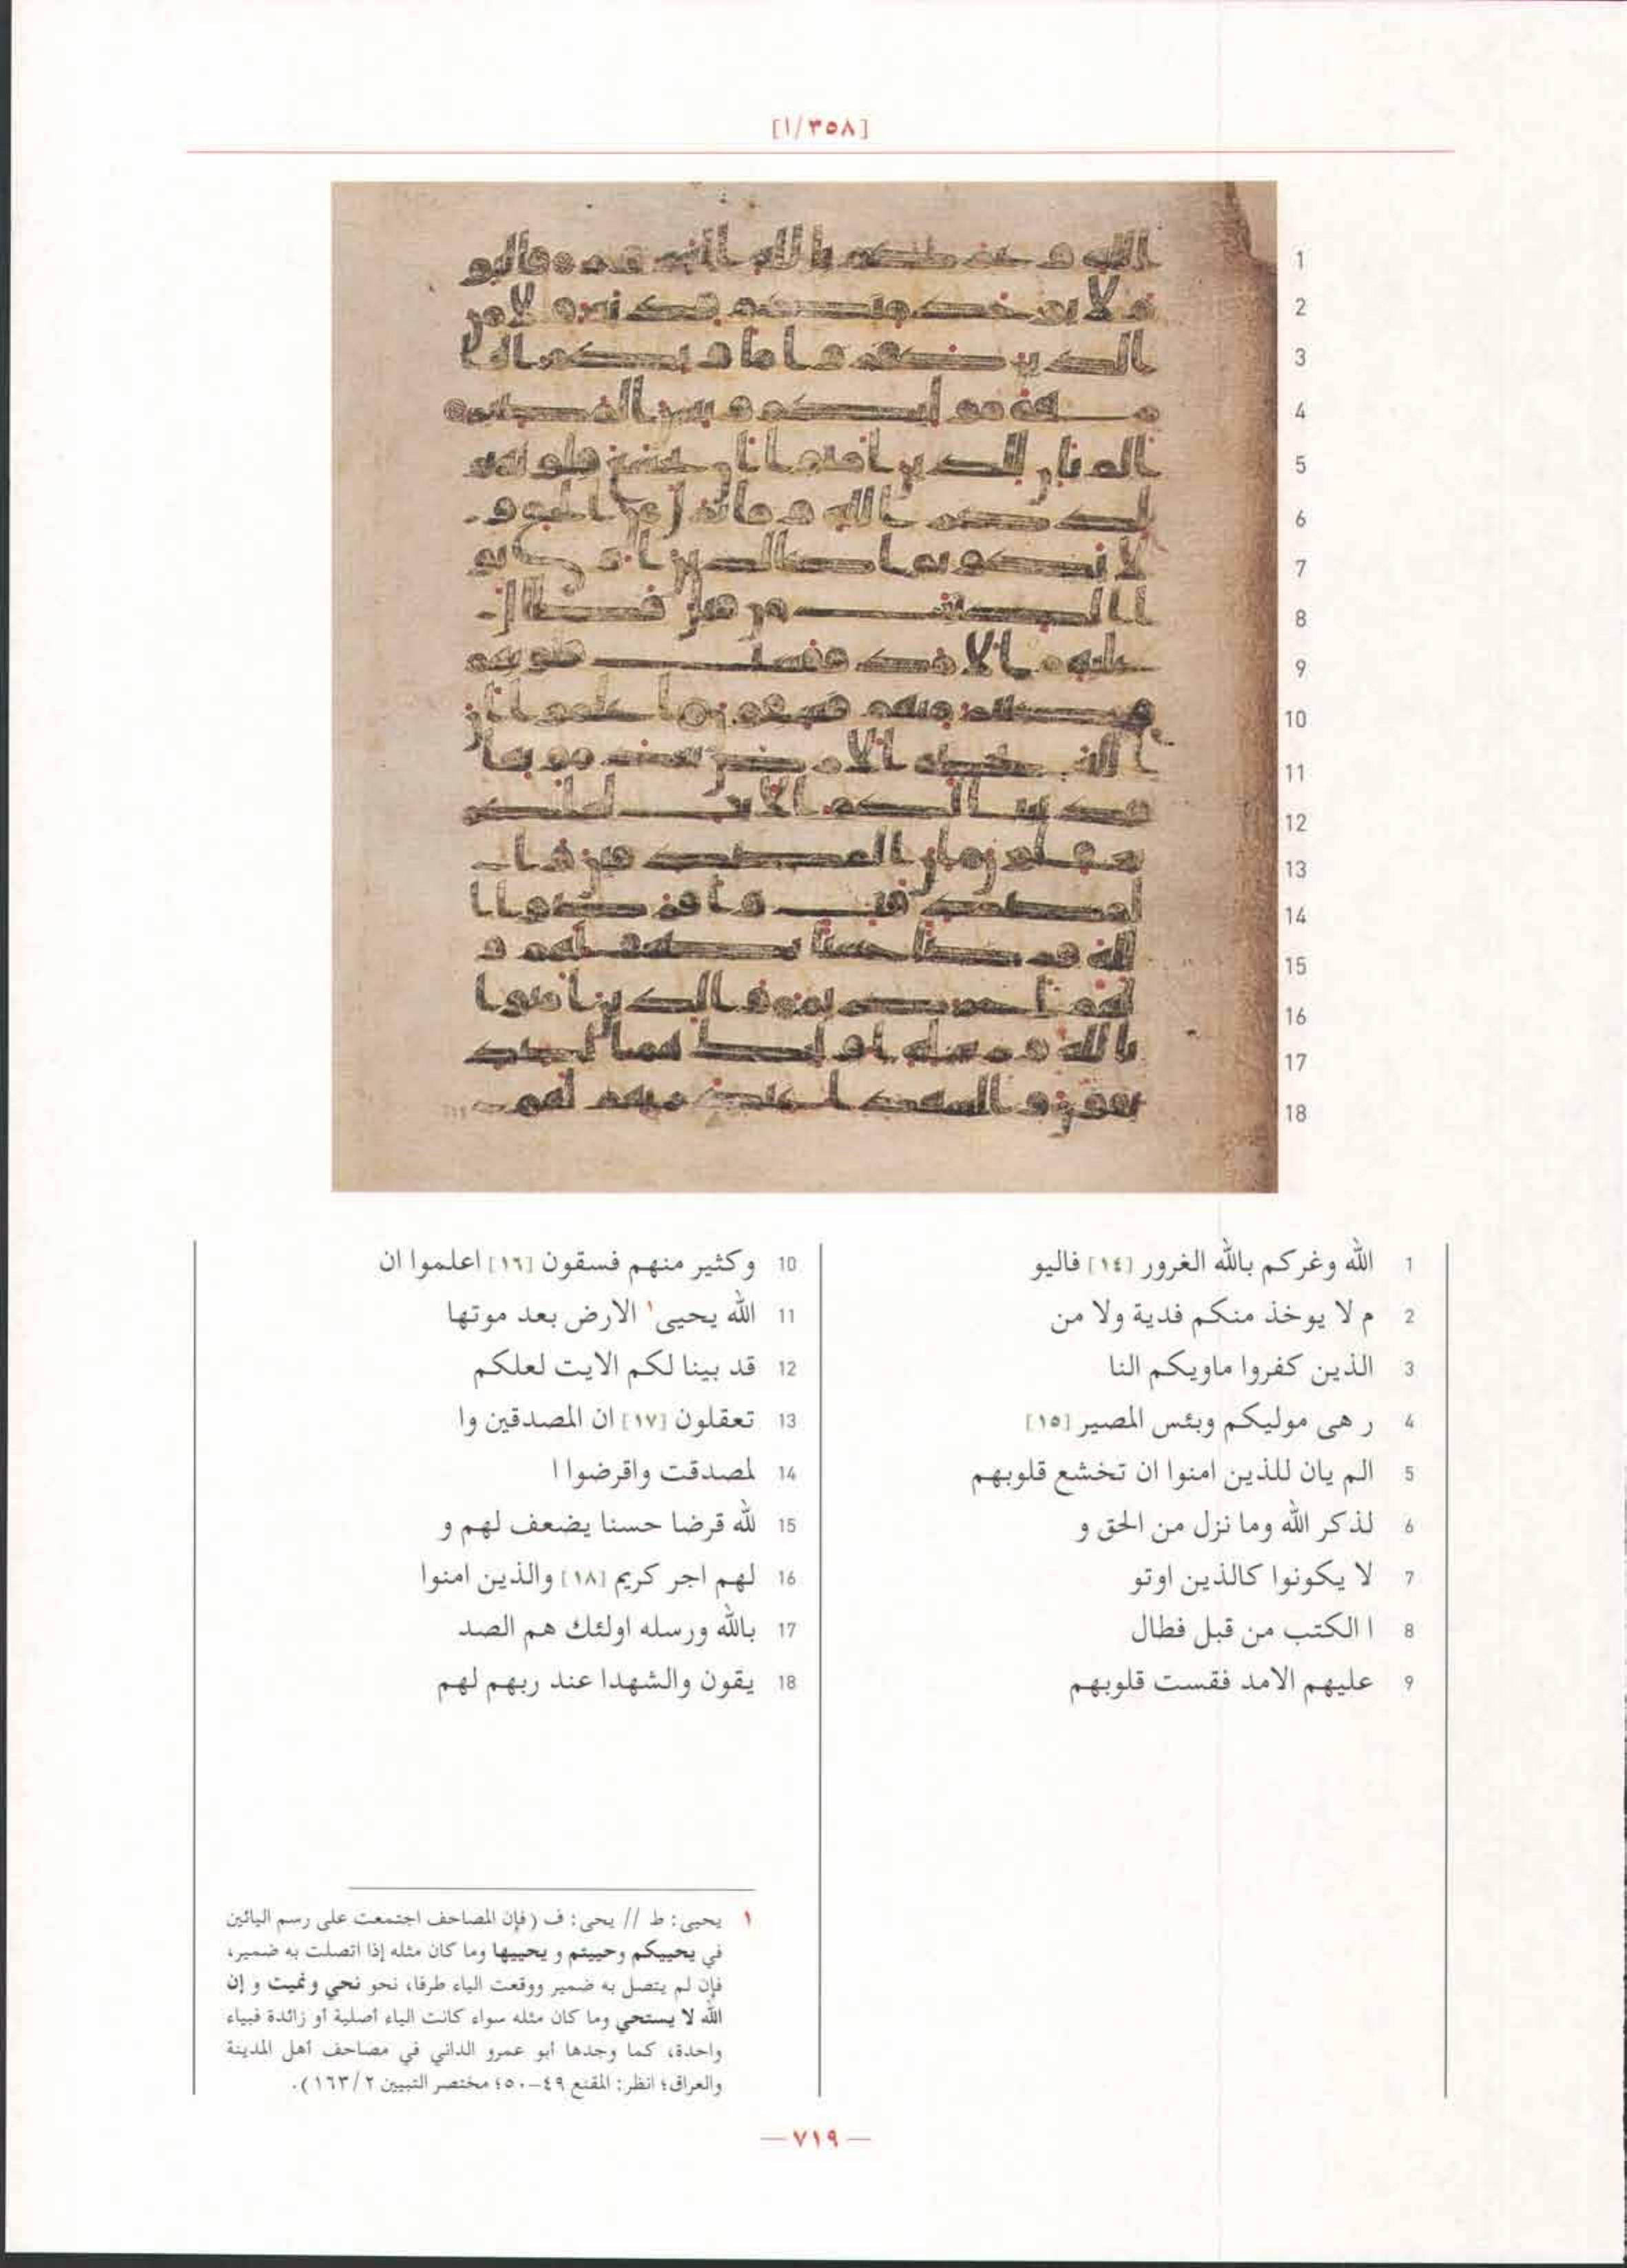 [٣٥٨/١]
1 الله وغركم بالله الغرور [١٤] فاليو
2 م لا يوخذ منكم فدية ولا من
3 الذين كفروا ماويكم النا
4 ر هى موليكم وبئس المصير [١٥]
5 الم يان للذين امنوا ان تخشع قلوبهم
6 لذكر الله وما نزل من الحق و
7 لا يكونوا كالذين اوتو
8 ا الكتب من قبل فطال
9 عليهم الامد فقست قلوبهم
10 وكثير منهم فسقون [١٦] اعلموا ان
11 الله يحيى١ الارض بعد موتها
12 قد بينا لكم الايت لعلكم
13 تعقلون [١٧] ان المصدقين وا
14 لمصدقت واقرضوا ا
15 لله قرضا حسنا يضعف لهم و
16 لهم اجر كريم [١٨] والذين امنوا
17 بالله ورسله اولئك هم الصد
18 يقون والشهدا عند ربهم لهم
١ يحيى: ط // يحى: ف (فإن المصاحف اجتمعت على رسم اليائين
في يحييكم وحييتم و يحييها وما كان مثله إذا اتصلت به ضمير،
فإن لم يتصل به ضمير ووقعت الياء طرفا، نحو نحي ونميت و إن
الله لا يستحي وما كان مثله سواء كانت الياء أصلية أو زائدة فبياء
واحدة، كما وجدها أبو عمرو الداني في مصاحف أهل المدينة
والعراق؛ انظر: المقنع ٤٩-٥٠؛ مختصر التبيين ٢/١٦٣).
— ٧١٩ —